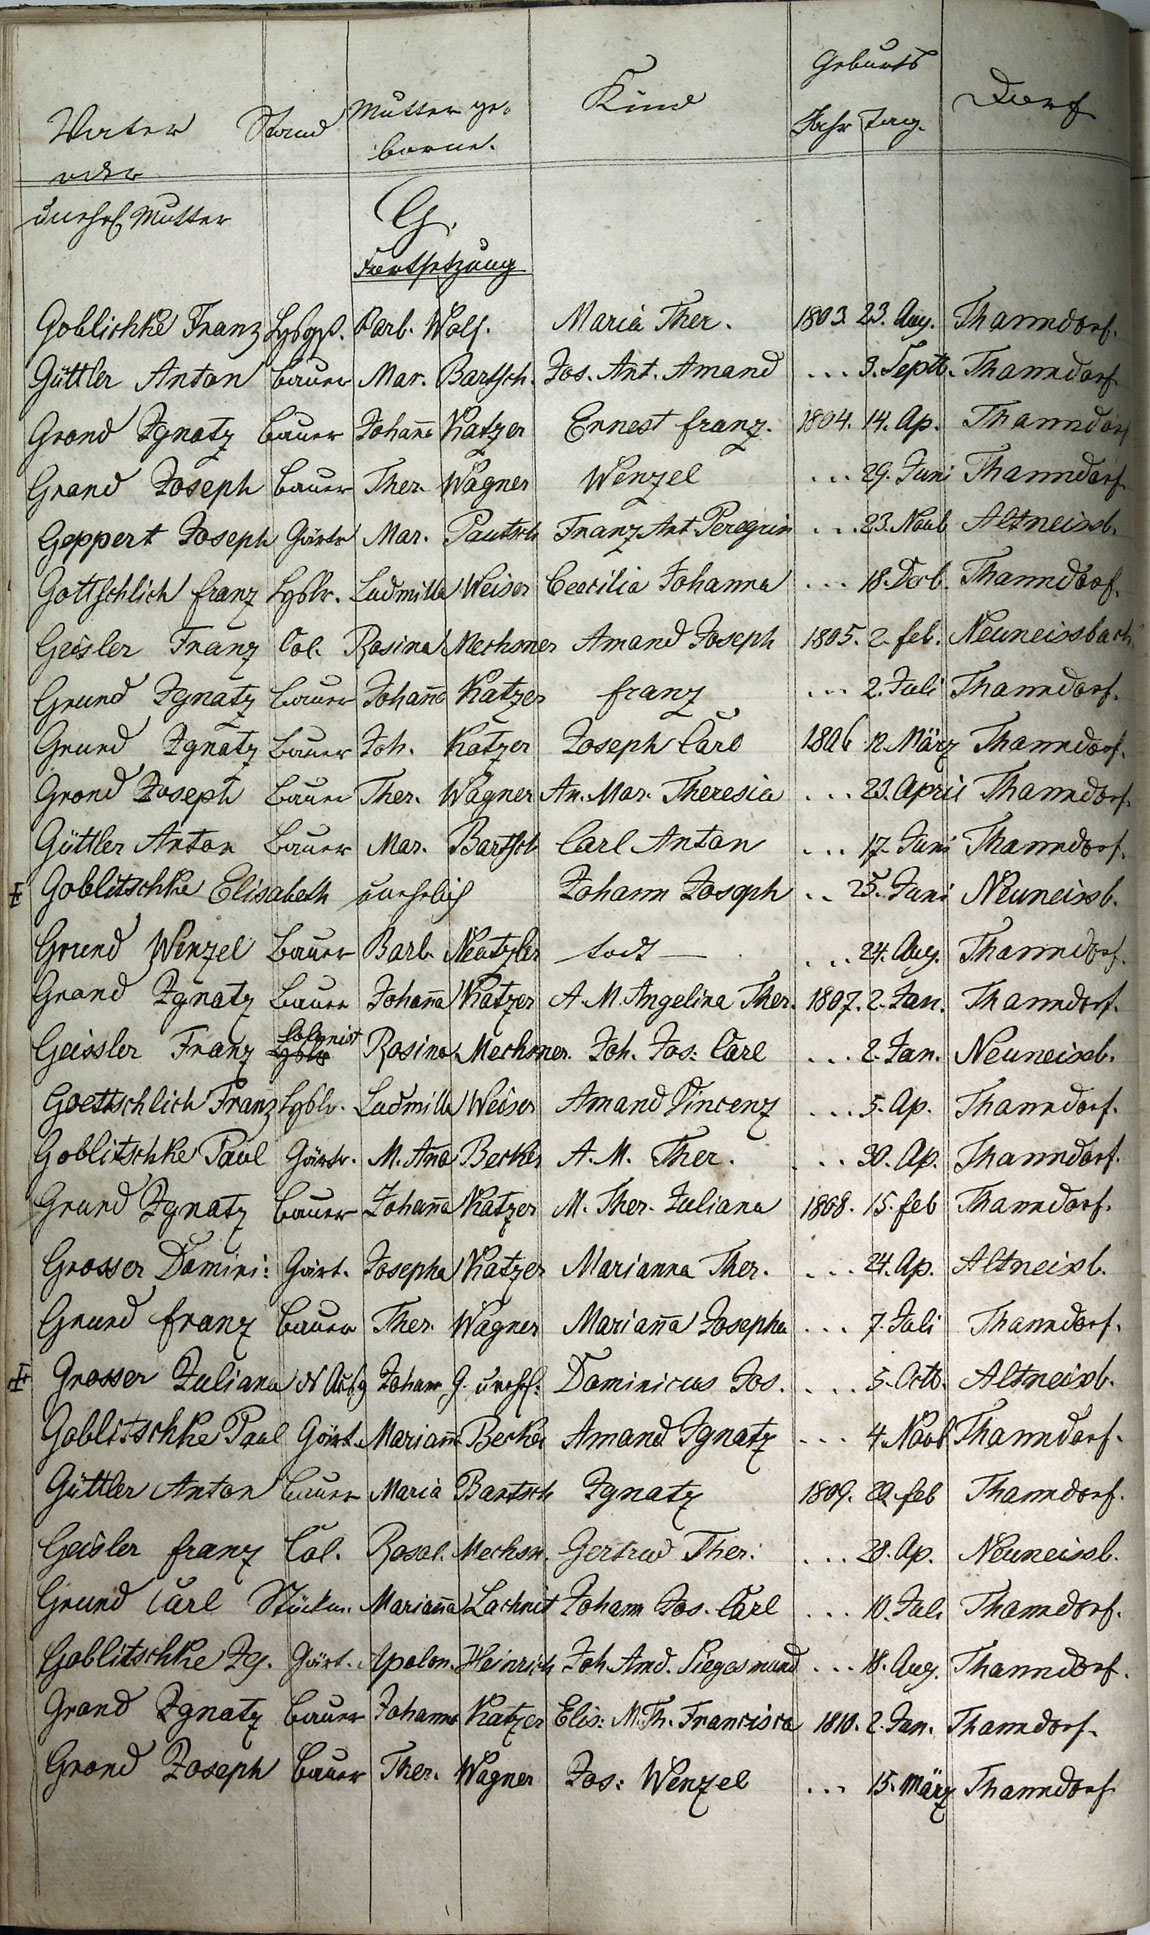 Vater Stand Mutter ge- Kind Geburts Dorf
oder borne. Jahr Tag.
unehel. Mutter
G.
Fortsetzung
Goblichke Franz Barb. Wolf. Maria Ther. 1803. 23. Aug. Thanndorf.
Güttler Anton Bauer Mar. Bartsch. Jos. Ant. Amand ... 3. Septb. Thanndorf
Grond Ignatz Bauer Johana Katzer Ernest franz. 1804. 14. Ap. Thanndorf
Grand Joseph Bauer Ther. Wagner Wenzel ... 29. Juni Thanndorf
Geppert Joseph Gärtr Mar. Pautsch Franz Ant Peregrin ... 23. Novb Altneissb.
Gottschlich franz Hslr. Ludmilla Weiser Ceacilia Johanna ... 18. Decb. Thanndorf.
Geisler Franz Col. Rosina Mechsner Amand Joseph 1805. 2. feb. Neuneissbach
Grund Ignatz Bauer Johana Katzer franz ... 2. Juli Thanndorf.
Grund Ignatz Bauer Joh. Katzer Joseph Carl 1806 12. März Thanndorf.
Grond Joseph Bauer Ther. Wagner An. Mar. Theresia ... 23. April Thanndorf.
Güttler Anton Bauer Mar. Bartsch Carl Anton ... 17. Juni Thanndorf.
Goblitschke Elisabeth unehelich Johann Joseph .. 25. Juni Neuneissb.
Grund Wenzel Bauer Barb. Neutzler todt — ... 24. Aug. Thanndorf.
Grand Ignatz Bauer Johana Katzer A. M. Angelina Ther. 1807. 2. Jan. Thanndorf.
Geissler Franz Colonist Rosina Mechsner. Joh. Jos: Carl ... 2. Jan. Neuneissb.
Goettschlich Franz Hslr. Ludmilla Weiser Amand Vincenz ... 5. Ap. Thanndorf.
Goblitschke Paul Gärtr. M. Ana Becker A. M. Ther. ... 30. Ap. Thanndorf.
Grund Ignatz Bauer Johana Katzer M. Ther. Juliana 1808. 15. feb Thanndorf.
Grosser Domini: Gärt. Josepha Katzer Marianna Ther. ... 24. Ap. Altneissb.
Grund franz Bauer Ther. Wagner Mariana Josepha ... 7. Juli Thanndorf.
Grosser Juliana Johan G. unehl. Dominicus Jos. ... 5. Octb. Altneissb.
Goblitschke Paul Gärt. Mariana Becker Amand Ignatz ... 4. Novb Thanndorf.
Güttler Anton Bauer Maria Bartsch Ignatz 1809. feb Thanndorf.
Geisler franz Col. Rosal. Mechsn. Gertrud Ther: ... 28. Ap. Neuneissb.
Grund Carl Stückm. Mariana Lachnit Johann Jos. Carl ... 10. Juli Thanndorf.
Goblitschke Ig. Gärt. Apolon. Heinrich Joh. Amd. Siegesmund ... 18. Aug. Thanndorf.
Grand Ignatz Bauer Johana Katzer Elis: M. Th. Francisca 1810. 2. Jan. Thanndorf.
Grond Joseph Bauer Ther. Wagner Jos: Wenzel ... 15. März Thanndorf